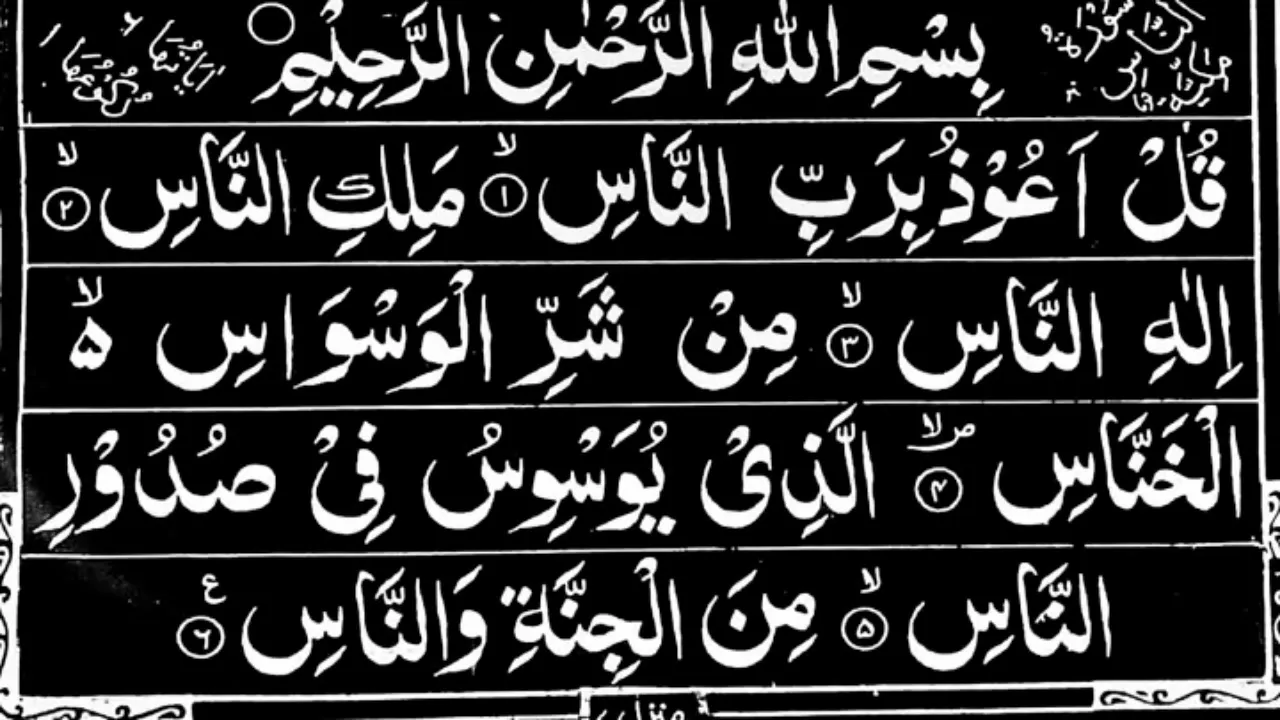 بِسْمِ اللّٰهِ الرَّحْمٰنِ الرَّحِيْمِ
قُلْ اَعُوْذُ بِرَبِّ النَّاسِ ۙ﴿۱﴾ مَلِكِ النَّاسِ ۙ﴿۲﴾
اِلٰهِ النَّاسِ ۙ﴿۳﴾ مِنْ شَرِّ الْوَسْوَاسِ ۵ۙ
الْخَنَّاسِ ﴿۴﴾۪ۙ الَّذِىْ يُوَسْوِسُ فِىْ صُدُوْرِ
النَّاسِ ۙ﴿۵﴾ مِنَ الْجِنَّةِ وَالنَّاسِ ﴿۶﴾ ع